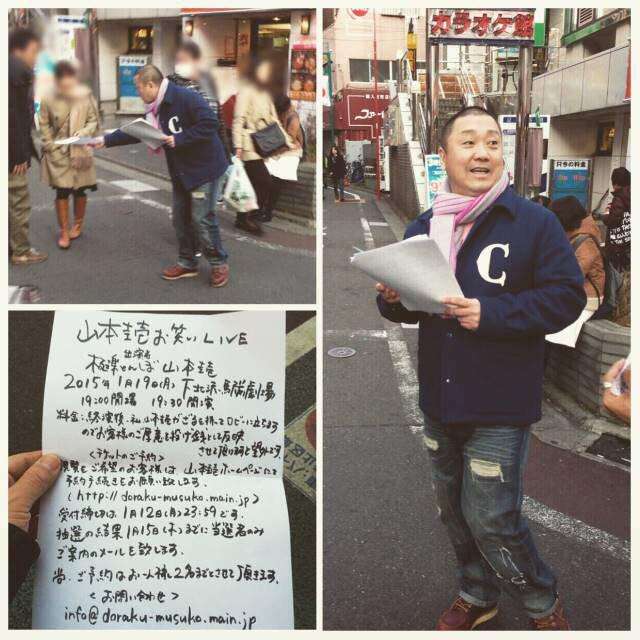 カラオケ館
C
只今の料金
C
山本圭壱お笑いLIVE
出演者
極楽とんぼ 山本圭壱
2015年1月19日(月) 下北沢・駅前劇場
19:00開場 19:30開演
料金:終演後、私山本圭壱がざるを持ってロビーに立ちます
のでお客様のご厚意を投げ銭として反映
させて頂ければと望みます
<チケットのご予約>
観覧をご希望のお客様は山本圭壱ホームページにて
予約手続きをお願い致します。
(http://doraku-musuko.main.jp)
受付締切は1月12日(月)23:59です。
抽選の結果1月15日(木)までに当選者のみ
ご案内のメールを致します。
尚、ご予約はお一人様2名までとさせて頂きます。
<お問い合わせ>
info@doraku-musuko.main.jp